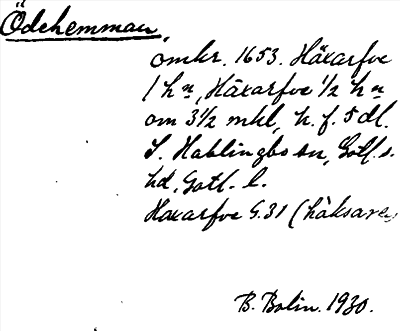 Ödehemman,
omkr. 1653. Häxarfve
1 hn, Häxarfve 1/2 hn
om 3 1/2 mkl, h. f. 5 dl.
S. Hablingbo sn, Gotl. s.
hd, Gotl. l.
Haxarfve G.31 (håksarve)
B. Bolin. 1930.